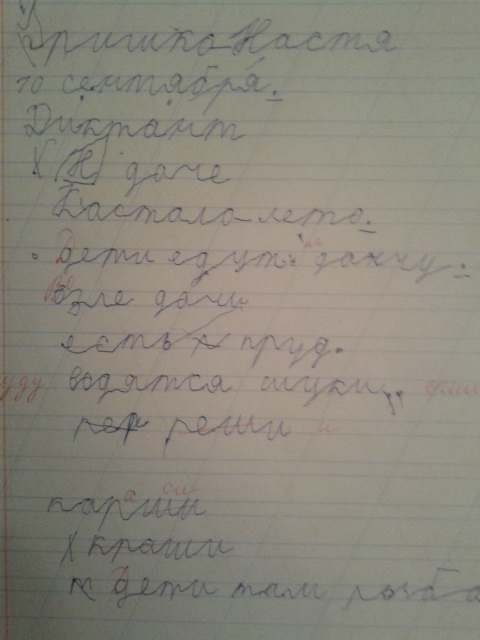 Гришко Настя
10 сентября.
Диктант
Н даче
Настало лето.
Дети едут на данчу.
Возле дачи
есть пруд.
водятся щуки,
реши и
караси
краши
Дети там